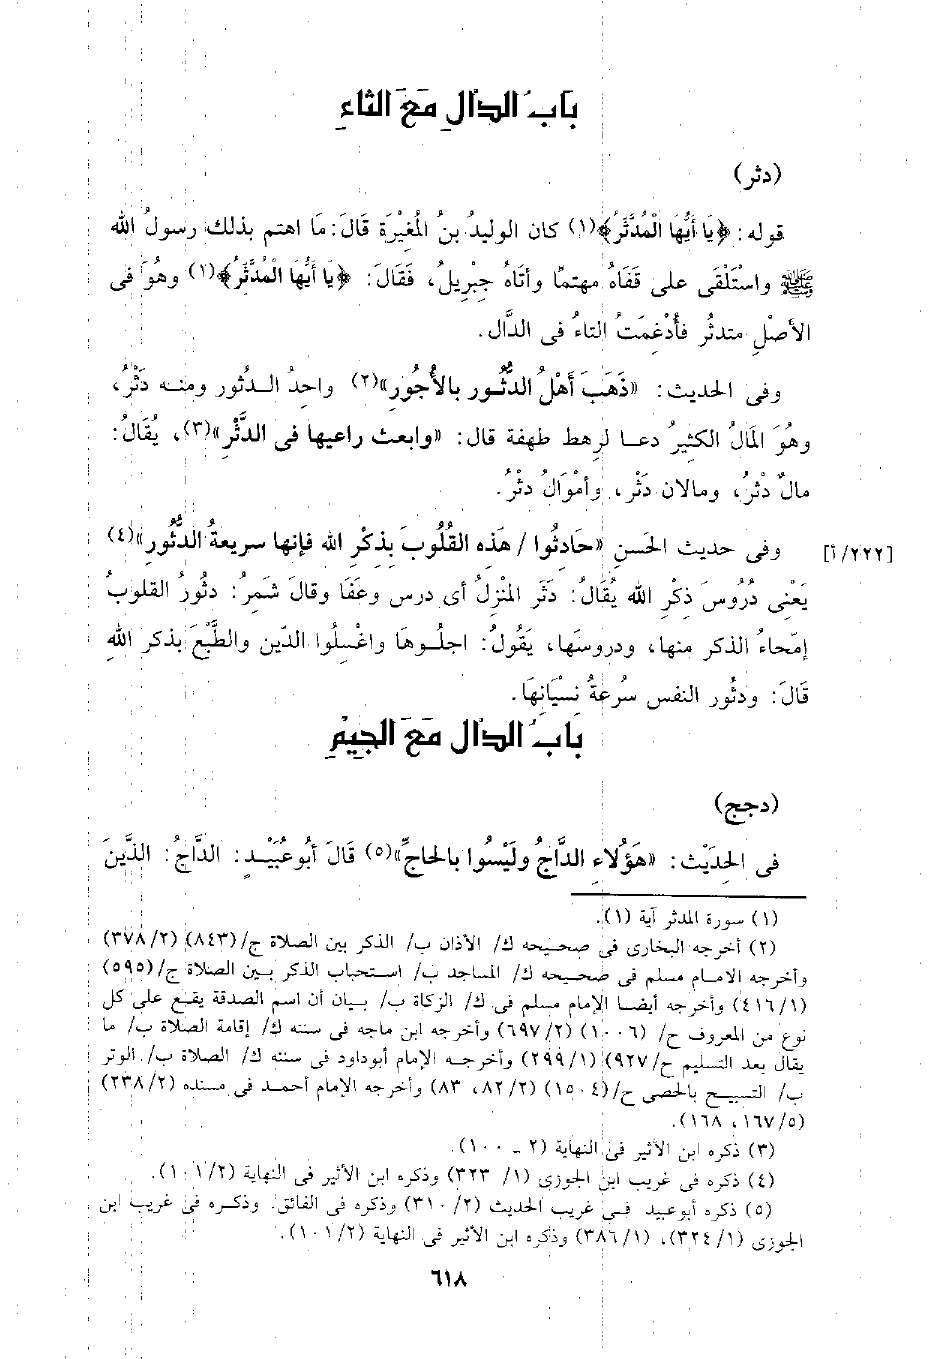 بَابُ الدال مَعَ الثاءِ
(دثر)
قوله: ﴿يَا أيُّهَا الْمُدَّثِّرُ﴾(١) كان الوليدُ بنُ المُغيْرَة قَالَ: مَا اهتم بذلك رسولُ الله
ﷺ واستَلْقَى على قفَاهُ مهتمًا وأتَاهُ جِبْريلُ، فَقَالَ: ﴿يَا أيُّهَا الْمُدَّثِّرُ﴾(١) وهُوَ فى
الأصْلِ متدثُر فأُدْغِمَتُ التاءُ فى الدَّال.
وفى الحديث: «ذَهَبَ أهْلُ الدُّثُور بالأُجُورِ»(٢) واحِدُ الدُثور ومنه دَثْرُ،
وهُوَ المَالُ الكثيرُ دعا لرهط طهفة قال: «وابعث راعيها فى الدَّثْر»(٣)، يُقَالُ:
مالٌ دثْرُ، ومالان دَثْر، وأمْوَالُ دثْرُ.
وفى حديث الحَسنِ «حَادثُوا / هَذه القُلُوبَ بِذكرِ الله فإنها سريعةُ الدُّثُورِ»(٤)
[٢٢٢/أ]
يَعْنِى دُرُوسَ ذِكْرِ الله يُقَالُ: دَثَر المَنْزلُ أى درس وعَفَا وقالَ شَمرُ: دثُورُ القلوبُ
إمِّحاءُ الذكر منها، ودروسهَا، يَقُولُ: اجلُوهَا واغْسلُوا الدّين والطَّبْعَ بذكر الله
قَالَ: ودثُور النفس سُرعةُ نسْيَانهَا.
بَابُ الدال مَعَ الجِيْمِ
(دجج)
فى الحديْث: «هَؤُلاء الدَّاجُ ولَيْسُوا بالحَاجِّ»(٥) قَالَ أبُو عُبَيْد: الدَّاجُ: الذَّينَ
(١) سورة المدثر آية (١).
(٢) أخرجه البخارى فى صحيحه ك/ الأذان ب/ الذكر بين الصلاة ح/(٨٤٣) (٣٧٨/٢)
وأخرجه الامام مسلم فى صحيحه ك/ المساجد ب/ استحباب الذكر بين الصلاة ح/(٥٩٥)
(٤١٦/١) وأخرجه أيضا الإمام مسلم فى ك/ الزكاة ب/ بيان أن اسم الصدقة يقع على كل
نوع من المعروف ح/ (١٠٠٦) (٦٩٧/٢) وأخرجه ابن ماجه فى سننه ك/ إقامة الصلاة ب/ ما
يقال بعد التسليم ح/٩٢٧) (٢٩٩/١) وأخرجه الإمام أبوداود فى سننه ك/ الصلاة ب/ الوتر
ب/ التسبيح بالحصى ح/(١٥٠٤) (٨٢/٢، ٨٣) وأخرجه الإمام أحمد فى مسنده (٢٣٨/٢)
(١٦٧/٥، ١٦٨).
(٣) ذكره ابن الأثير فى النهاية (٢ - ١٠٠).
(٤) ذكره فى غريب ابن الجوزى (١/ ٣٢٣) وذكره ابن الأثير فى النهاية (١٠١/٢).
(٥) ذكره أبوعبيد فى غريب الحديث (٢/ ٣١٠) وذكره فى الفائق. وذكره فى غريب ابن
الجوزى (٣٢٤/١)، (٣٨٦/١) وذكره ابن الأثير فى النهاية (١٠١/٢).
٦١٨